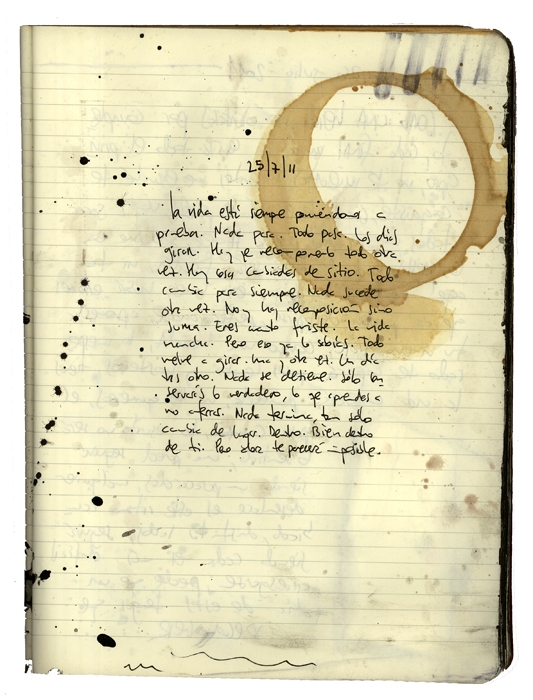 25/7/11
la vida está siempre poniéndonos a
prueba. Nada para. Todo pasa. Los días
giran. Hay que recomponerlo todo otra
vez. Hay cosas cambiadas de sitio. Todo
cambia para siempre. Nada sucede
otra vez. No hay recomposición sino
suma. Eres cuanto fuiste. La vida
mancha. Pero eso ya lo sabías. Todo
vuelve a girar. una y otra vez. Un día
tras otro. Nada se detiene. Sólo
servará lo verdadero, lo que aprendas a
no aferrar. Nada termina, tan sólo
cambia de lugar. Dentro. Bien dentro
de ti. Pero ahora te parecerá imposible.